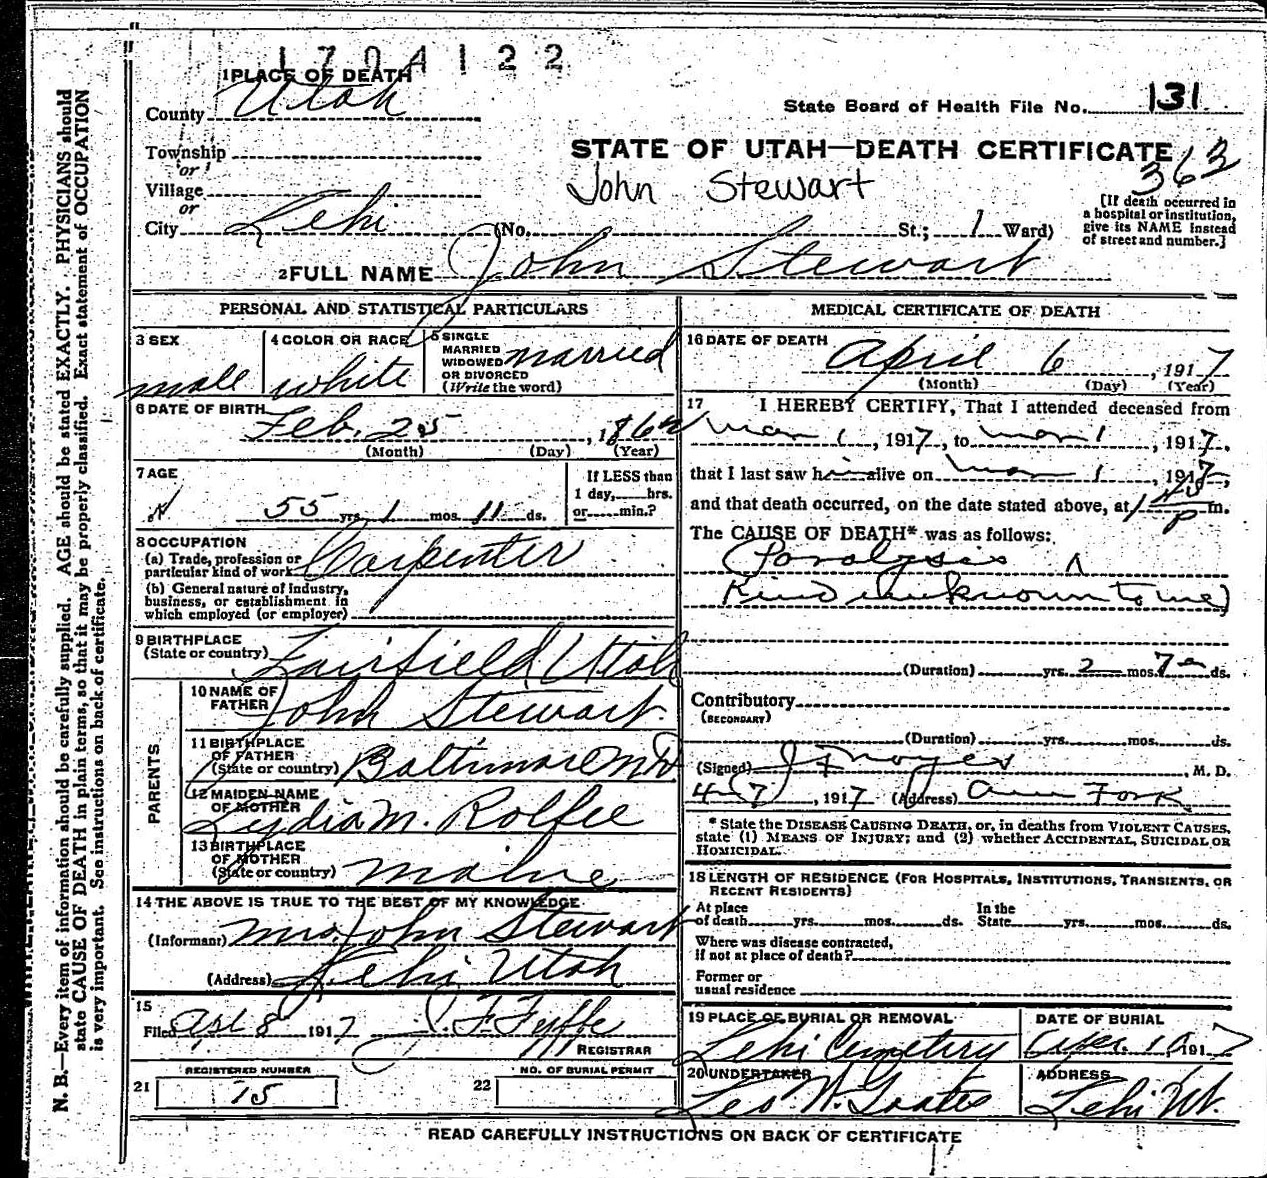 1704122
1 PLACE OF DEATH
County Utah
State Board of Health File No. 131
Township
or
Village
or
City Lehi (No. St.; 1 Ward)
STATE OF UTAH—DEATH CERTIFICATE
363
John Stewart
[If death occurred in
a hospital or institution,
give its NAME instead
of street and number.]
2 FULL NAME John Stewart
PERSONAL AND STATISTICAL PARTICULARS
3 SEX
male
4 COLOR OR RACE
white
5 SINGLE
MARRIED
WIDOWED
OR DIVORCED
(Write the word)
married
6 DATE OF BIRTH Feb. 25, 1862
(Month) (Day) (Year)
7 AGE
55 yrs. 1 mos. 11 ds.
If LESS than
1 day, hrs.
or min.?
8 OCCUPATION
(a) Trade, profession or
particular kind of work Carpenter
(b) General nature of industry,
business, or establishment in
which employed (or employer)
9 BIRTHPLACE
(State or country) Fairfield Utah
PARENTS
10 NAME OF
FATHER John Stewart
11 BIRTHPLACE
OF FATHER
(State or country) Baltimore Md
12 MAIDEN NAME
OF MOTHER Lydia M. Rolfee
13 BIRTHPLACE
OF MOTHER
(State or country) Maine
14 THE ABOVE IS TRUE TO THE BEST OF MY KNOWLEDGE
(Informant) Mrs. John Stewart
(Address) Lehi Utah
15
Filed Apl 8 1917
REGISTRAR
21 REGISTERED NUMBER
15
22 NO. OF BURIAL PERMIT
MEDICAL CERTIFICATE OF DEATH
16 DATE OF DEATH
April 6, 1917
(Month) (Day) (Year)
17 I HEREBY CERTIFY, That I attended deceased from
Mar 1, 1917, to Mar 1, 1917,
that I last saw him alive on Mar 1 1917,
and that death occurred, on the date stated above, at 1 P m.
The CAUSE OF DEATH* was as follows:
Paralysis
Kind unknown to me)
(Duration) yrs. 2 mos. 7 ds.
Contributory
(SECONDARY)
(Duration) yrs. mos. ds.
(Signed) J F Noyes, M. D.
4-7, 1917 (Address) Am Fork
* State the DISEASE CAUSING DEATH, or, in deaths from VIOLENT CAUSES,
state (1) MEANS OF INJURY; and (2) whether ACCIDENTAL, SUICIDAL OR
HOMICIDAL.
18 LENGTH OF RESIDENCE (FOR HOSPITALS, INSTITUTIONS, TRANSIENTS, OR
RECENT RESIDENTS)
At place
of death yrs. mos. ds.
In the
State yrs. mos. ds.
Where was disease contracted,
if not at place of death?
Former or
usual residence
19 PLACE OF BURIAL OR REMOVAL
Lehi Cemetery
DATE OF BURIAL
Apr. 10 1917
20 UNDERTAKER
Leo W. Goates
ADDRESS
Lehi Ut.
READ CAREFULLY INSTRUCTIONS ON BACK OF CERTIFICATE
N. B.—Every item of information should be carefully supplied. AGE should be stated EXACTLY. PHYSICIANS should
state CAUSE OF DEATH in plain terms, so that it may be properly classified. Exact statement of OCCUPATION
is very important. See instructions on back of certificate.